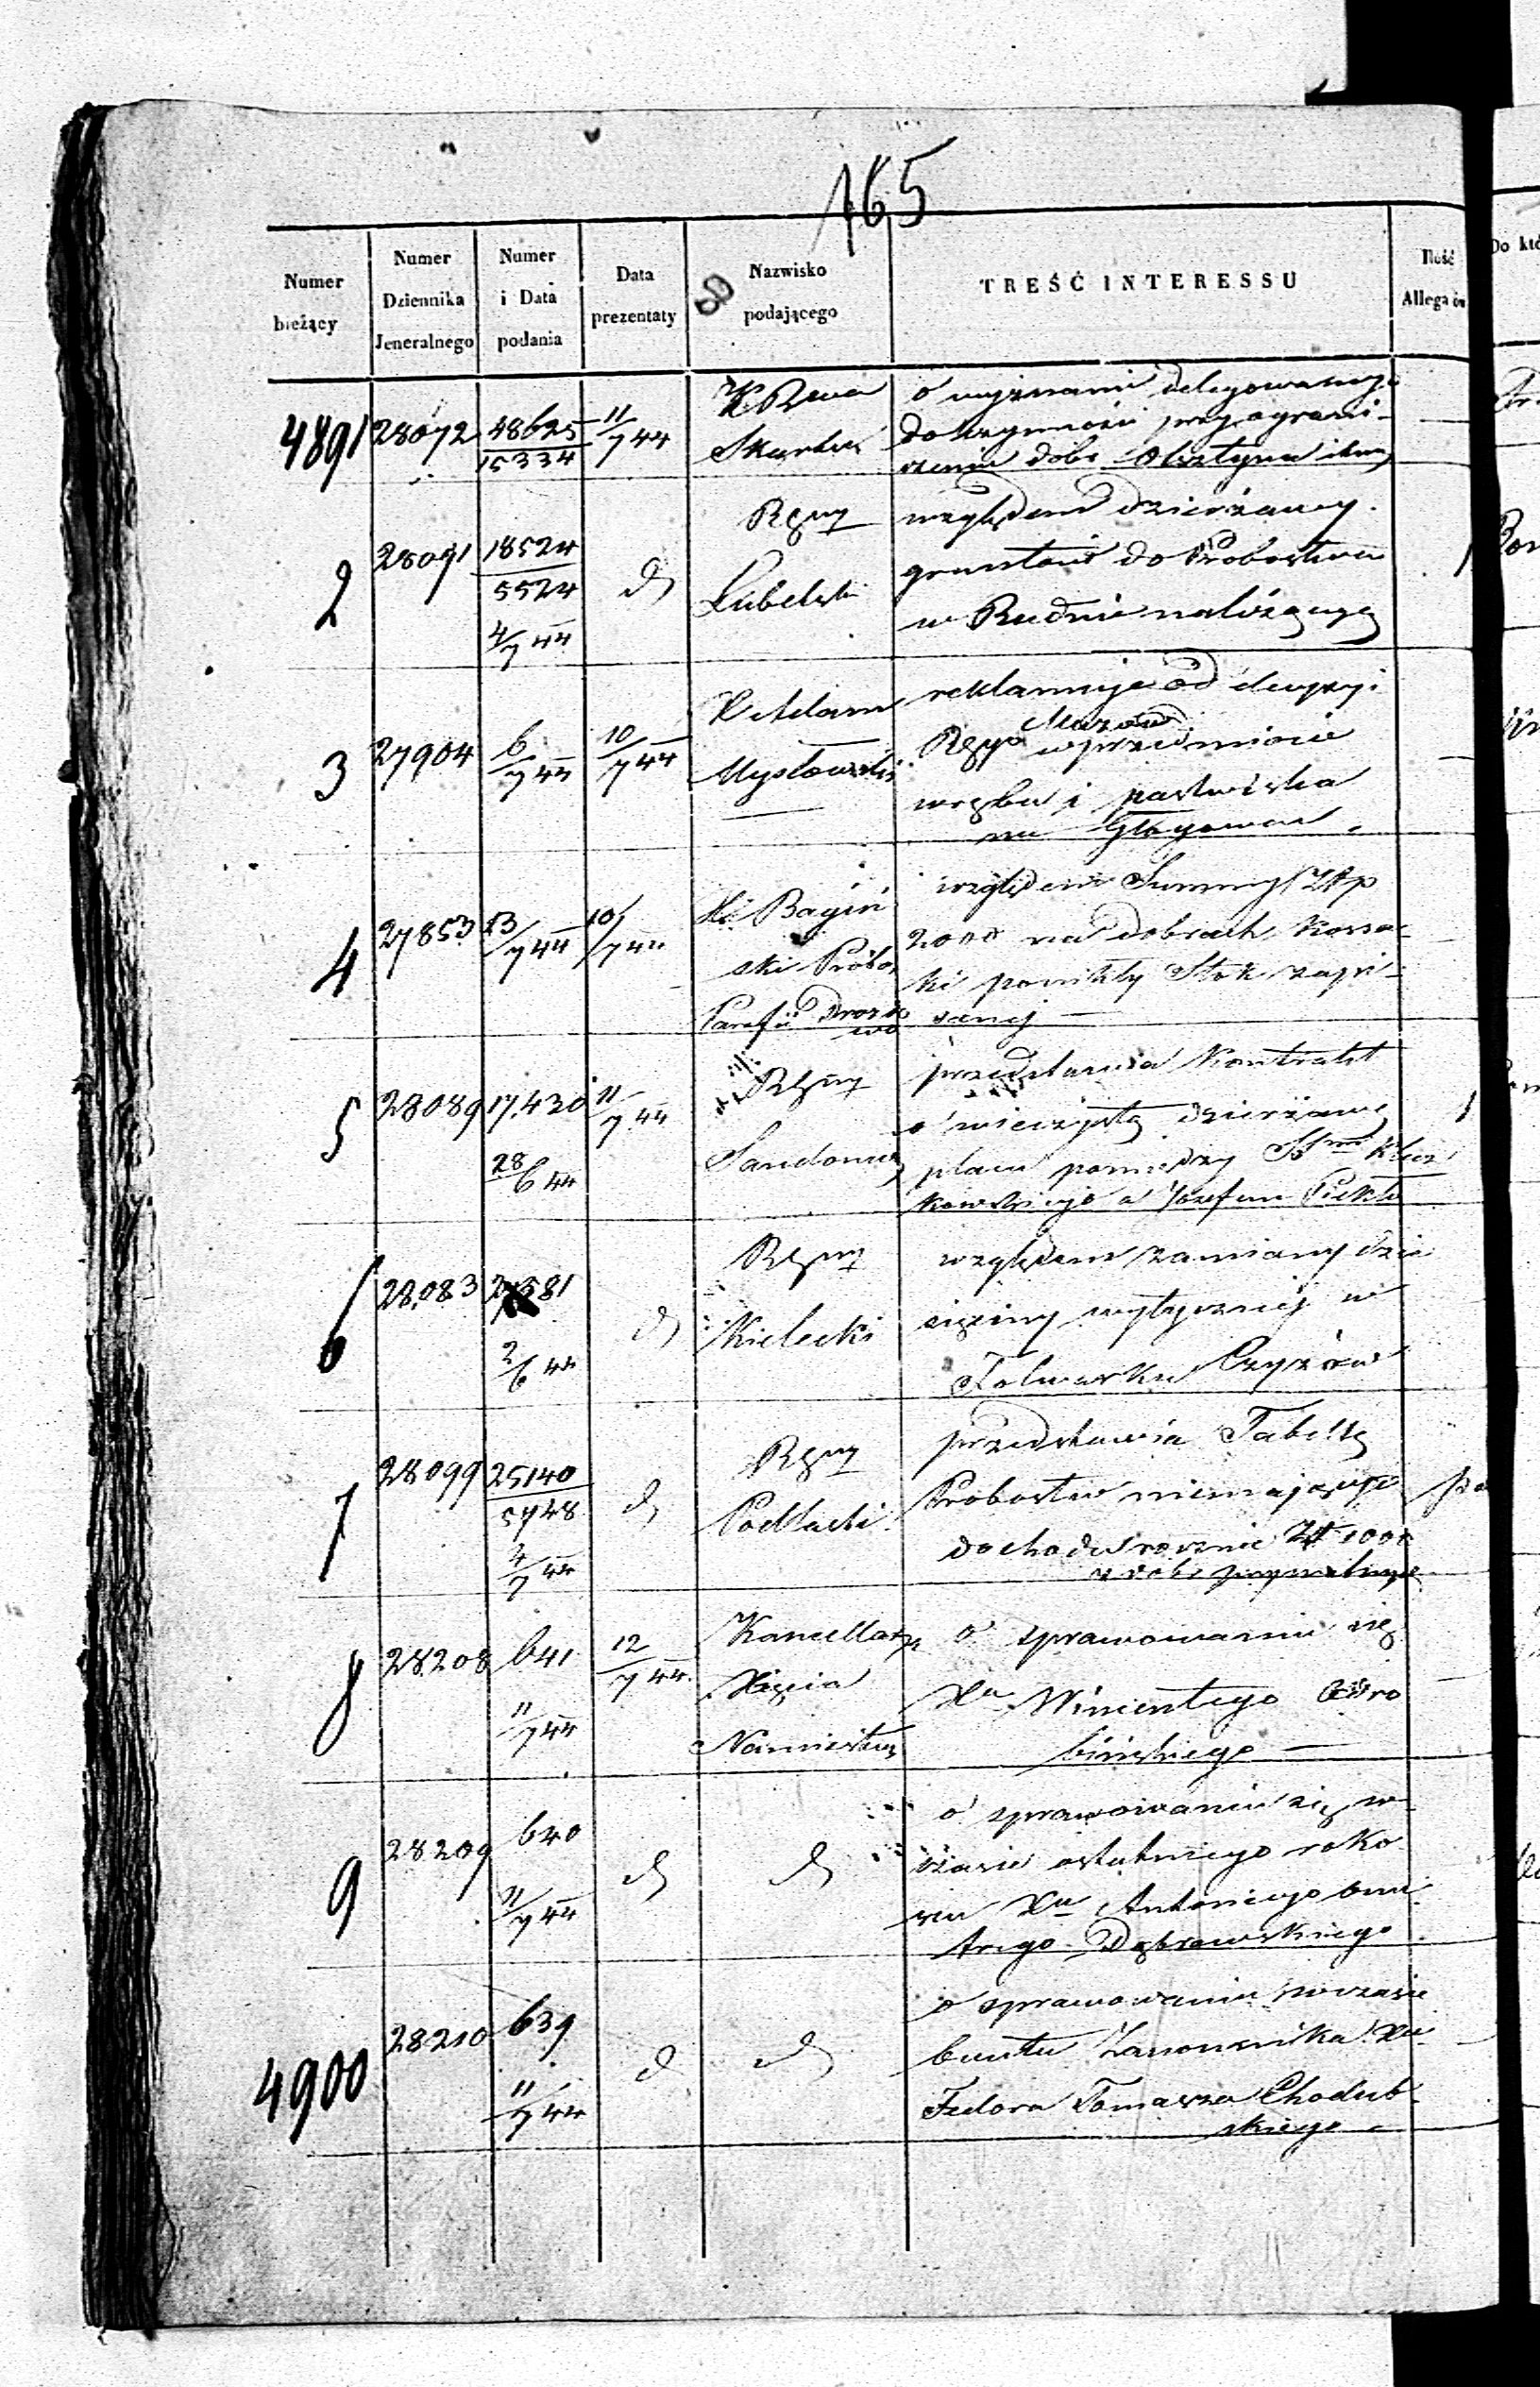 165
Numer bieżący
Numer Dziennika Jeneralnego
Numer i Data podania
Data prezentaty
Nazwisko podającego
TREŚĆ INTERESSU
Ilość Allega ów
Do któ
4891 28072 48625 / 15334 11/7 44
Skarbu
delegowanego
do czynności przy ograni-
czeniu dóbr Olsztyna
2 28091 18524 / 5524 4/7 44 d
Rząd Lubelski
względem dzierżawy
gruntów do Probostwa
w Rudnie należących
3 27904 6/7 44 10/7 44
X Adam Mysłowski
reklamuje od decyzyi
Rządu Mazow w przedmiocie
wrębu i pastwiska
4 27853 23/7 44 10/7 44
X Bagiń
ski Probo
Parafii Drozdo
wo
względem Summy Złp
2000 na dobrach Kossa-
ki pomikły Stok zapi-
sanej
5 28089 17,430 28/6 44 11/7 44
Rząd
Sandomir
przedstawia Kontrakt
o wieczystą dzierżawę
placu pomiędzy
kowskiego a Józefem
6 28,083 2/6 44 d
Rząd
Kielecki
względem zamiany dzie
sięciny wytycznej w
Folwarku Czyżów
7 28099 25140 / 5748 4/7 44 d
Rząd
Podlaski
przedstawia Tabellę
Probostw niemających
dochodu rocznie Zł 1000
8 28208 641 11/7 44 12/7 44
Kancellarya
Xięcia
Namiestnika
o sprawowaniu się
Xa Wincentego Odro
bińskiego
9 28209 640 11/7 44 d d
o sprawowaniu się w
czasie ostatniego roko
szu Xa Antoniego
Dąbrowskiego
4900 28210 639 11/7 44 d d
o sprawowaniu w czasie
buntu Zakonnika Xa
Fedora Tomasza Chodub
skiego